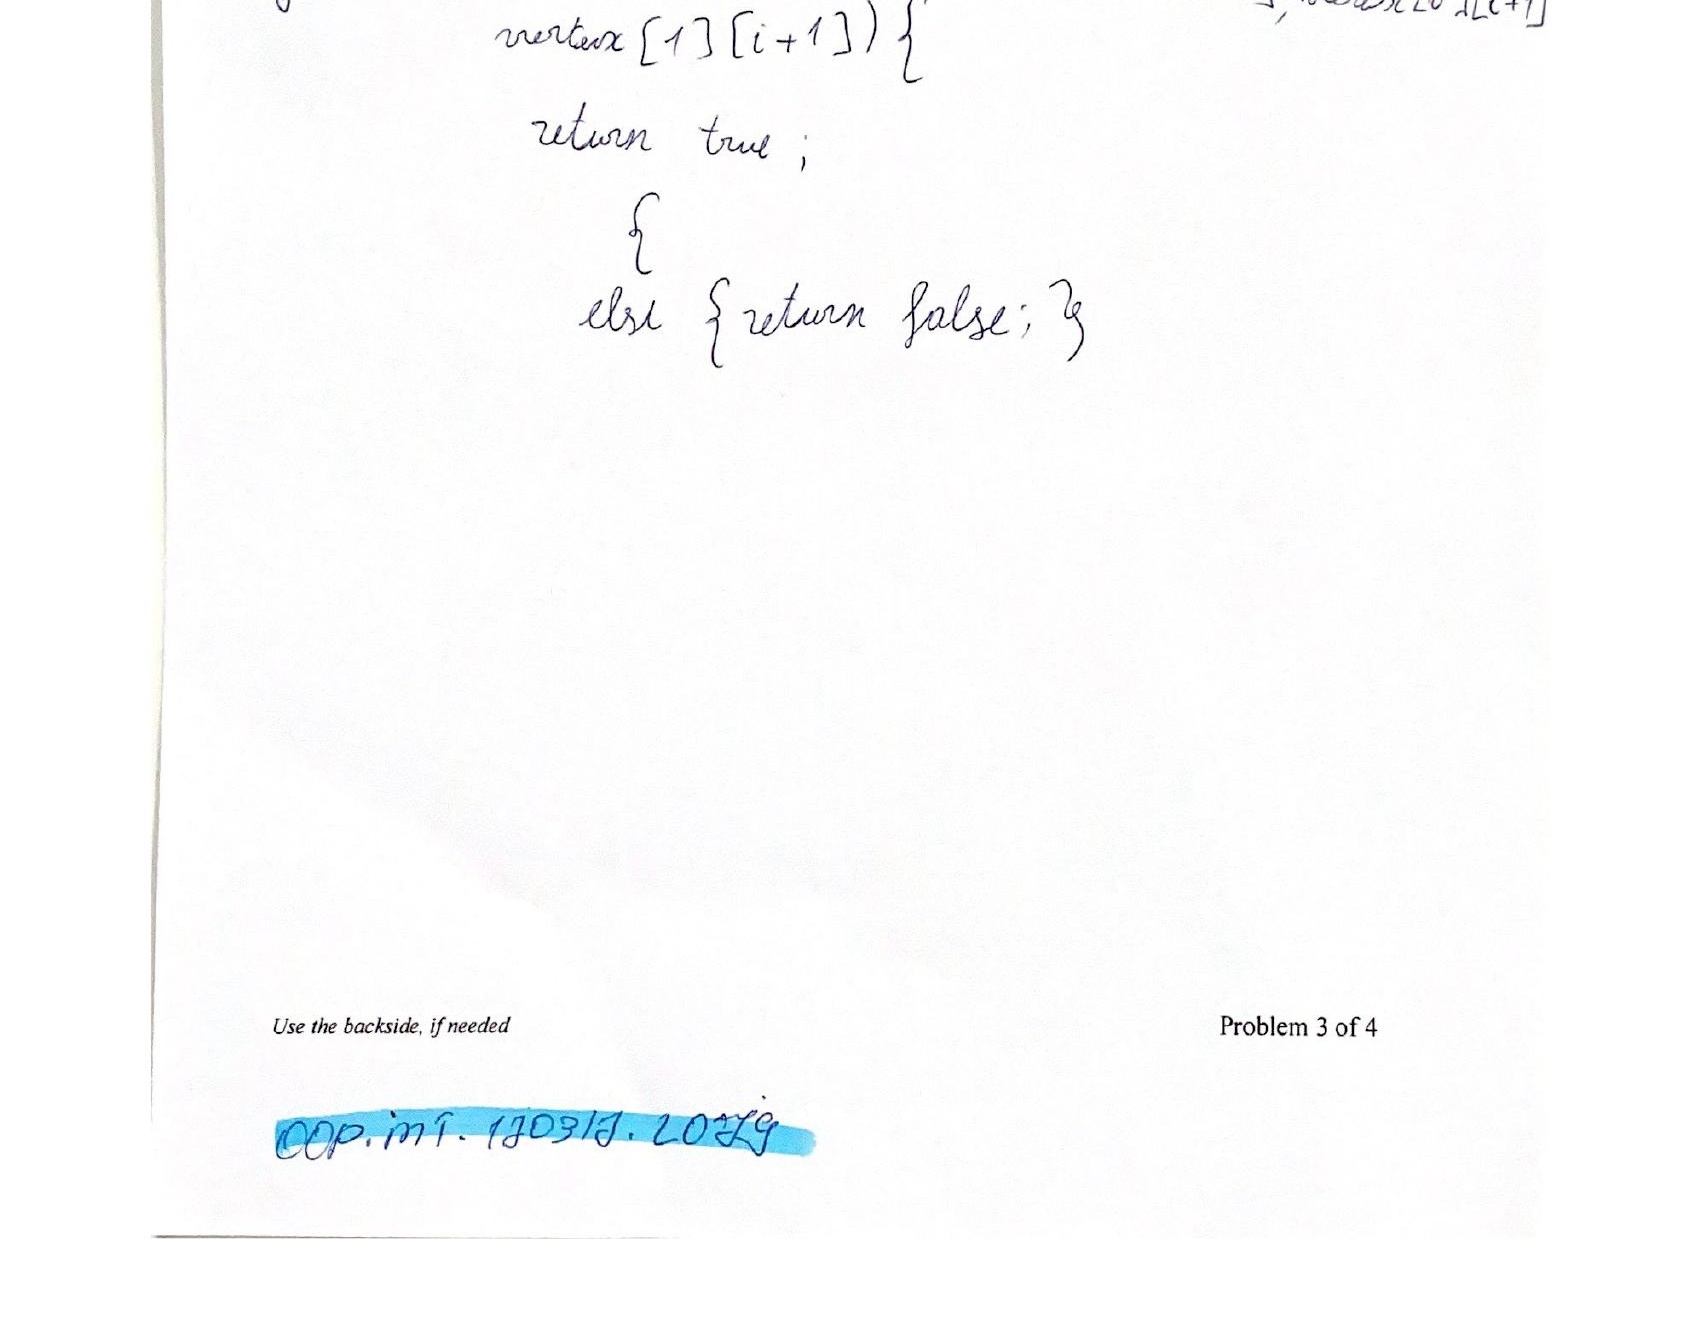 vertex [1] [i+1]) {
return true ;
{
else { return false; }
Use the backside, if needed
Problem 3 of 4